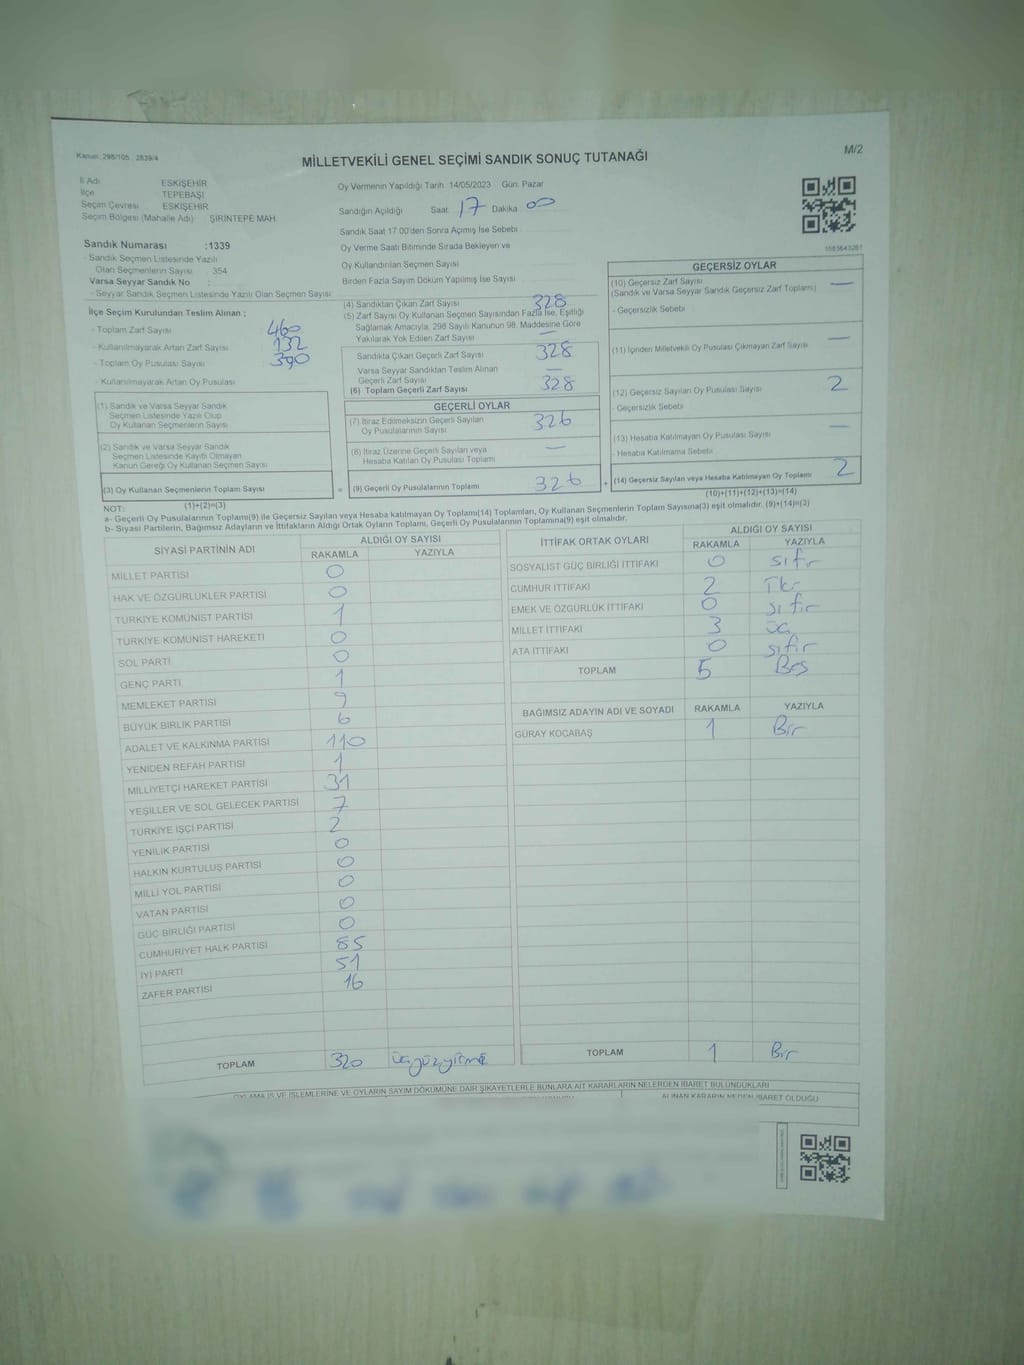 Kanun: 298/105 , 2839/4
MİLLETVEKİLİ GENEL SEÇİMİ SANDIK SONUÇ TUTANAĞI
M/2
İl Adı ESKİŞEHİR
İlçe TEPEBAŞI
Seçim Çevresi ESKİŞEHİR
Seçim Bölgesi (Mahalle Adı) ŞİRİNTEPE MAH.
Oy Vermenin Yapıldığı Tarih :14/05/2023 Gün: Pazar
Sandığın Açıldığı Saat 17 Dakika 00
Sandık Saat 17:00'den Sonra Açılmış İse Sebebi
Sandık Numarası :1339
- Sandık Seçmen Listesinde Yazılı
Olan Seçmenlerin Sayısı : 354
Varsa Seyyar Sandık No :
- Seyyar Sandık Seçmen Listesinde Yazılı Olan Seçmen Sayısı
Oy Verme Saati Bitiminde Sırada Bekleyen ve
Oy Kullandırılan Seçmen Sayısı
Birden Fazla Sayım Döküm Yapılmış İse Sayısı
İlçe Seçim Kurulundan Teslim Alınan ;
- Toplam Zarf Sayısı 460
- Kullanılmayarak Artan Zarf Sayısı 132
- Toplam Oy Pusulası Sayısı 390
- Kullanılmayarak Artan Oy Pusulası
(1) Sandık ve Varsa Seyyar Sandık
Seçmen Listesinde Yazılı Olup
Oy Kullanan Seçmenlerin Sayısı
(2) Sandık ve Varsa Seyyar Sandık
Seçmen Listesinde Kayıtlı Olmayan
Kanun Gereği Oy Kullanan Seçmen Sayısı
(3) Oy Kullanan Seçmenlerin Toplam Sayısı =
(1)+(2)=(3)
(4) Sandıktan Çıkan Zarf Sayısı 328
(5) Zarf Sayısı Oy Kullanan Seçmen Sayısından Fazla İse, Eşitliği
Sağlamak Amacıyla, 298 Sayılı Kanunun 98. Maddesine Göre
Yakılarak Yok Edilen Zarf Sayısı —
Sandıkta Çıkan Geçerli Zarf Sayısı 328
Varsa Seyyar Sandıktan Teslim Alınan
Geçerli Zarf Sayısı —
(6) Toplam Geçerli Zarf Sayısı 328
GEÇERLİ OYLAR
(7) İtiraz Edilmeksizin Geçerli Sayılan
Oy Pusulalarının Sayısı 326
(8) İtiraz Üzerine Geçerli Sayılan veya
Hesaba Katılan Oy Pusulası Toplamı —
(9) Geçerli Oy Pusulalarının Toplamı 326 +
GEÇERSİZ OYLAR
(10) Geçersiz Zarf Sayısı —
(Sandık ve Varsa Seyyar Sandık Geçersiz Zarf Toplamı)
- Geçersizlik Sebebi
(11) İçinden Milletvekili Oy Pusulası Çıkmayan Zarf Sayısı —
(12) Geçersiz Sayılan Oy Pusulası Sayısı 2
- Geçersizlik Sebebi
(13) Hesaba Katılmayan Oy Pusulası Sayısı —
- Hesaba Katılmama Sebebi
(14) Geçersiz Sayılan veya Hesaba Katılmayan Oy Toplamı 2
(10)+(11)+(12)+(13)=(14)
NOT:
a- Geçerli Oy Pusulaların Toplamı(9) ile Geçersiz Sayılan veya Hesaba Katılmayan Oy Toplamı(14) Toplamları, Oy Kullanan Seçmenlerin Toplam Sayısına(3) eşit olmalıdır. (9)+(14)=(3)
b- Siyasi Partilerin, Bağımsız Adayların ve İttifakların Aldığı Ortak Oyların Toplamı, Geçerli Oy Pusulalarının Toplamına(9) eşit olmalıdır.
SİYASİ PARTİNİN ADI ALDIĞI OY SAYISI
RAKAMLA YAZIYLA
MİLLET PARTİSİ 0
HAK VE ÖZGÜRLÜKLER PARTİSİ 0
TÜRKİYE KOMÜNİST PARTİSİ 1
TÜRKİYE KOMÜNİST HAREKETİ 0
SOL PARTİ 0
GENÇ PARTİ 1
MEMLEKET PARTİSİ 9
BÜYÜK BİRLİK PARTİSİ 6
ADALET VE KALKINMA PARTİSİ 110
YENİDEN REFAH PARTİSİ 1
MİLLİYETÇİ HAREKET PARTİSİ 31
YEŞİLLER VE SOL GELECEK PARTİSİ 7
TÜRKİYE İŞÇİ PARTİSİ 2
YENİLİK PARTİSİ 0
HALKIN KURTULUŞ PARTİSİ 0
MİLLİ YOL PARTİSİ 0
VATAN PARTİSİ 0
GÜÇ BİRLİĞİ PARTİSİ 0
CUMHURİYET HALK PARTİSİ 85
İYİ PARTİ 51
ZAFER PARTİSİ 16
TOPLAM 320 üçyüzyirmi
İTTİFAK ORTAK OYLARI ALDIĞI OY SAYISI
RAKAMLA YAZIYLA
SOSYALİST GÜÇ BİRLİĞİ İTTİFAKI 0 sıfır
CUMHUR İTTİFAKI 2 İki
EMEK VE ÖZGÜRLÜK İTTİFAKI 0 sıfır
MİLLET İTTİFAKI 3 üç
ATA İTTİFAKI 0 sıfır
TOPLAM 5 Beş
BAĞIMSIZ ADAYIN ADI VE SOYADI RAKAMLA YAZIYLA
GÜRAY KOCABAŞ 1 Bir
TOPLAM 1 Bir
OYLAMA İŞ VE İŞLEMLERİNE VE OYLARIN SAYIM DÖKÜMÜNE DAİR ŞİKAYETLERLE BUNLARA AİT KARARLARIN NELERDEN İBARET BULUNDUKLARI
ALINAN KARARIN NEDEN İBARET OLDUĞU